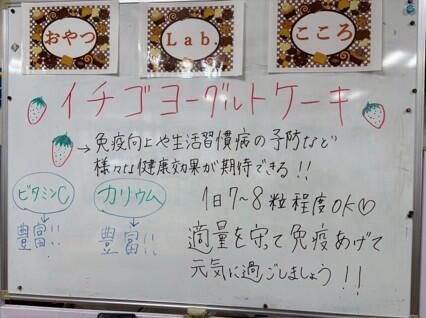 おやつ
Lab.
こころ
イチゴヨーグルトケーキ
→免疫向上や生活習慣病の予防など
様々な健康効果が期待できる!!
ビタミンC
豊富!!
カリウム
豊富!!
1日7~8粒程度OK♡
適量を守って免疫あげて
元気に過ごしましょう!!